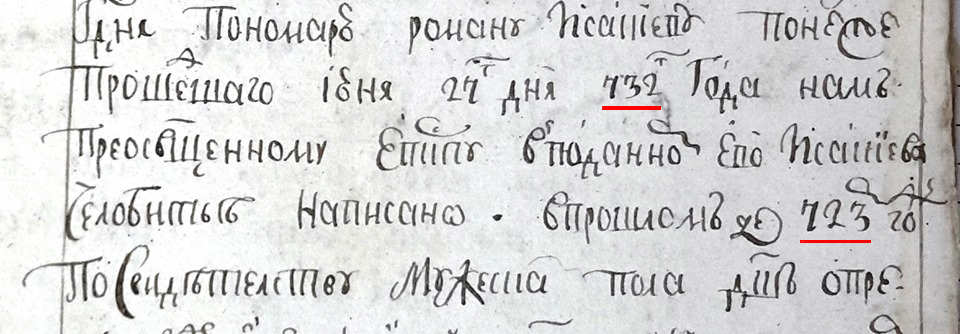 дня Пономарь романъ Исаиевъ понеже
Прошедшаго іюня 27 дня 732 Года намъ
Преосвященному Епископу в поданной ево Исаиева
Челобитье написано. в прошломъ де 723 го
По Свидѣтелству Мужеска пола душъ опре-